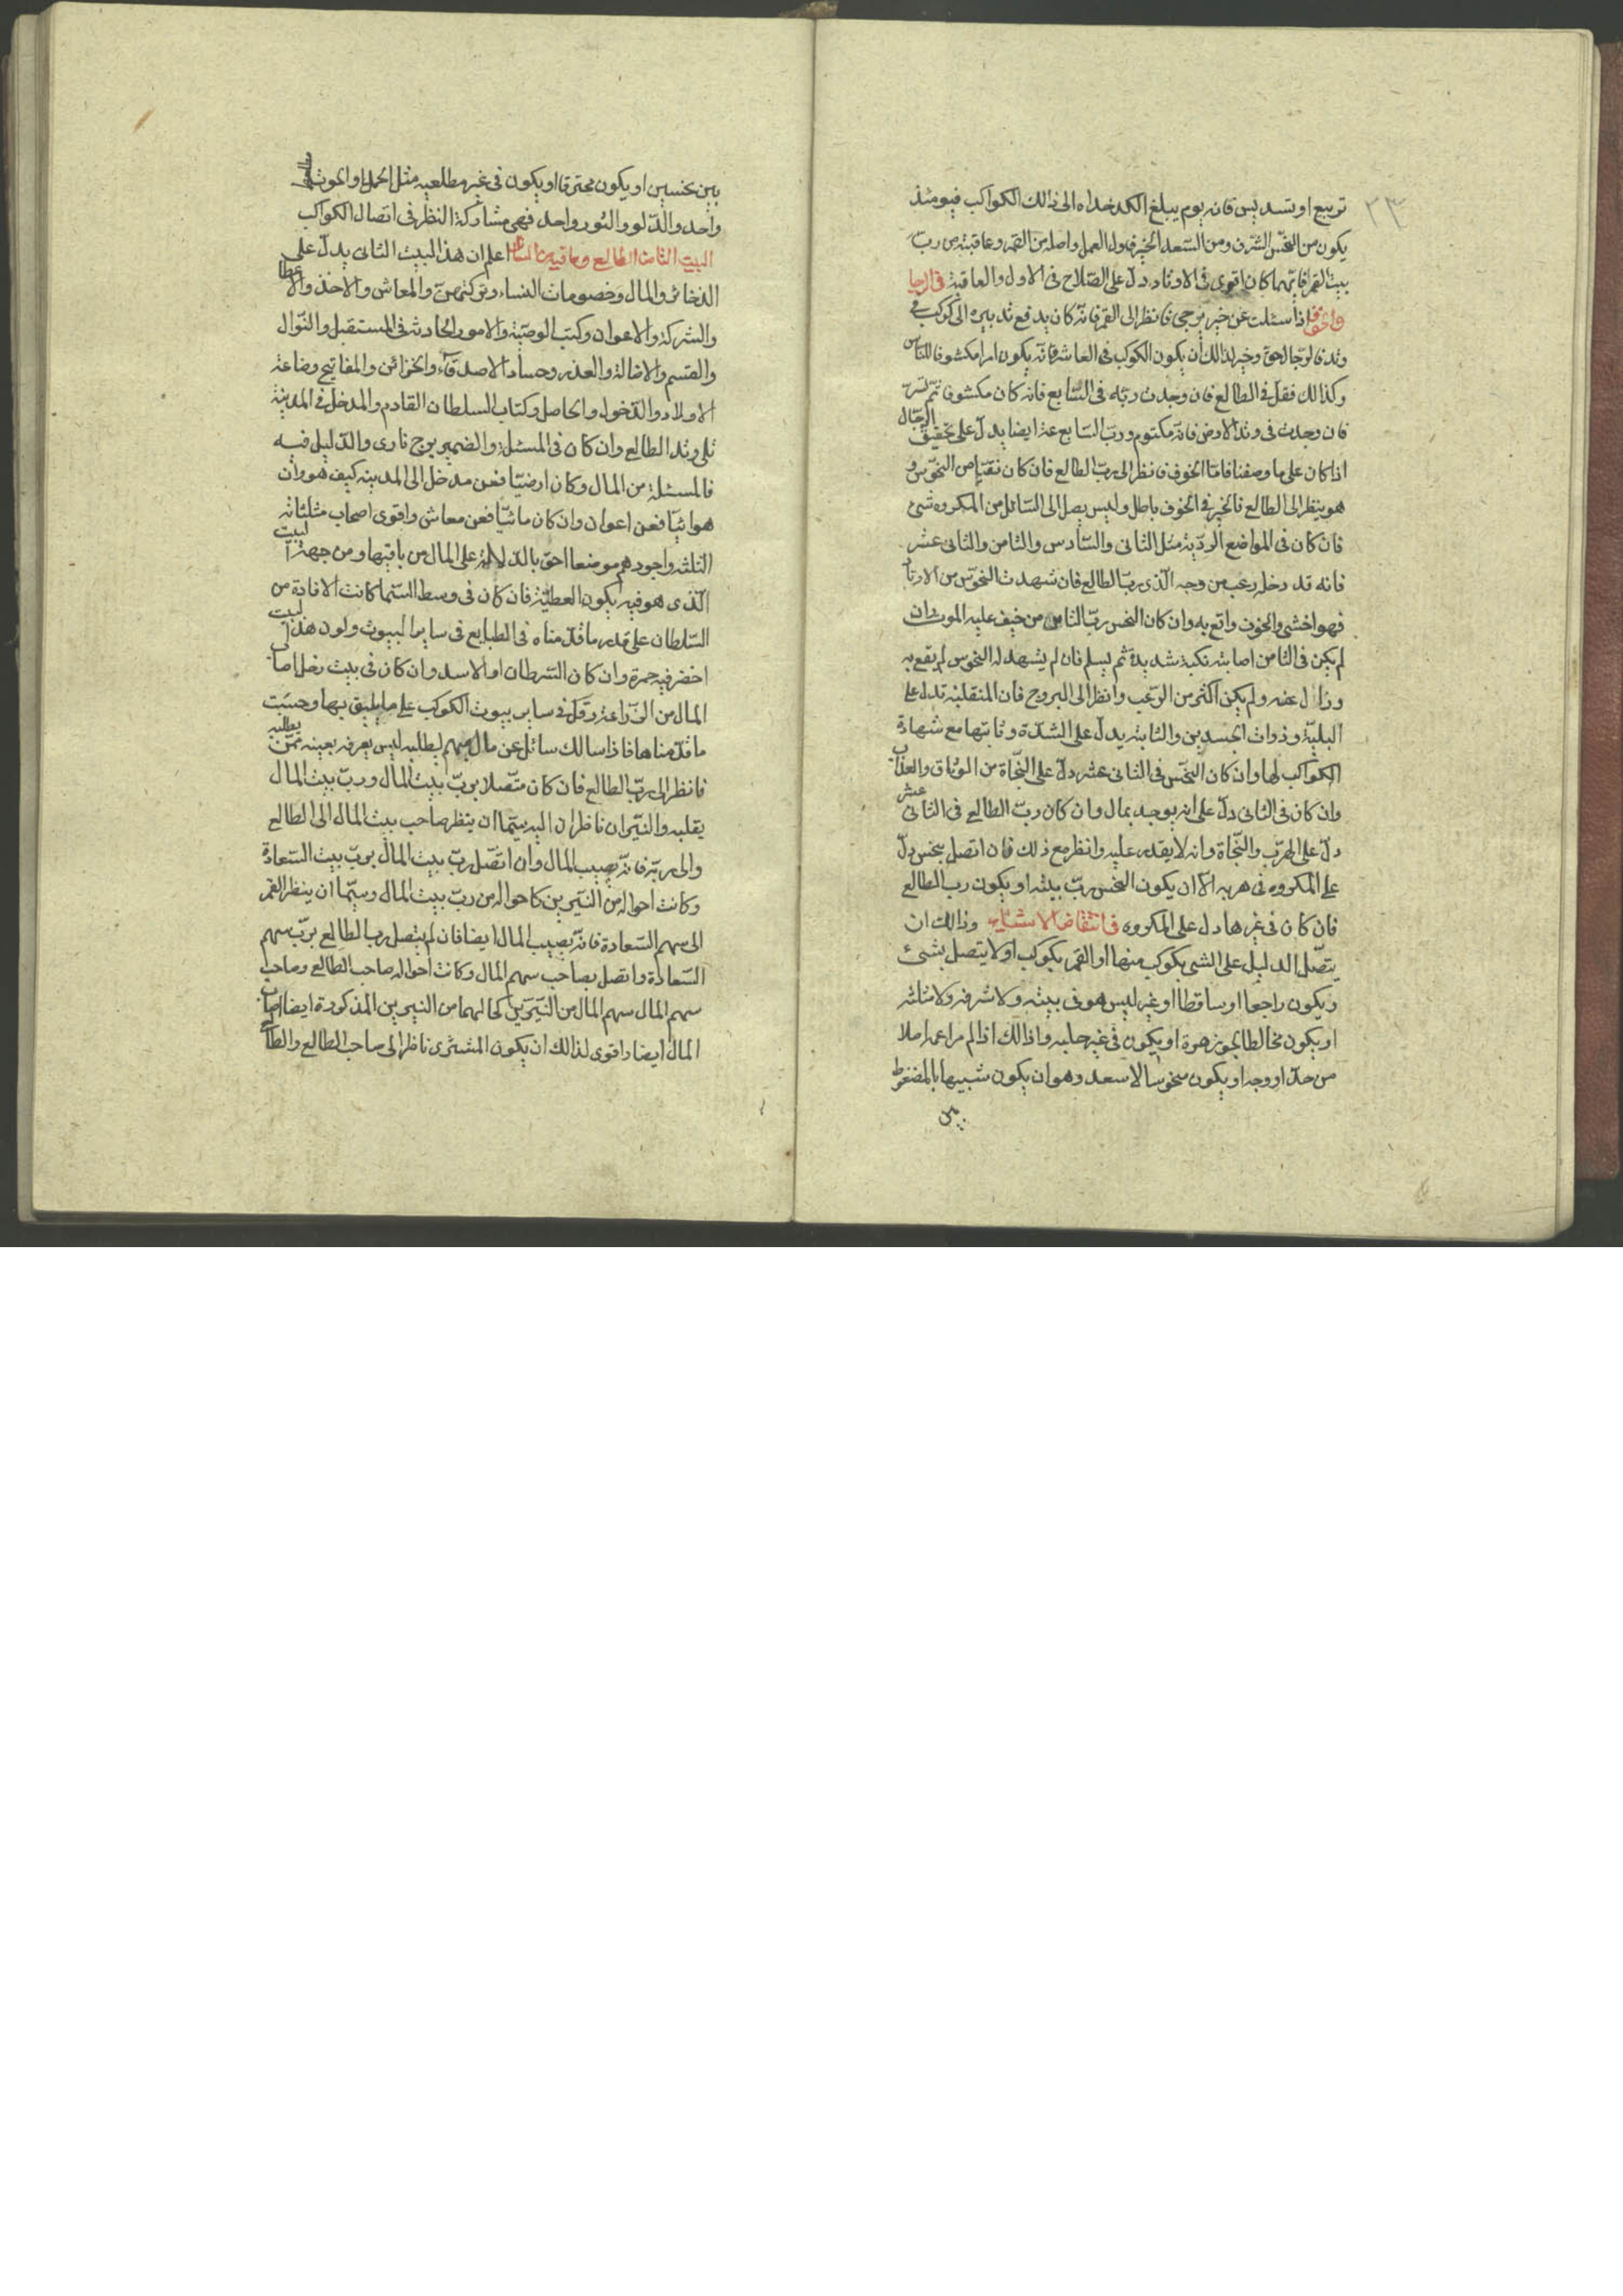 ٢٣
تربيع او تسديس فانه يوم يبلغ الكدخداه الى ذالك الكواكب فيومئذ
يكون من النحس الشرف ومن السعد الخير فاول العمل واصله من القمر وعاقبته من رب
بيت القمر فايهما كان اقوى فى الاوتاد دل على الصلاح فى الاول والعاقبة فى الرجا
والخوف اذا سئلت عن خير يرجى فانظر الى القمر فانه كان يدفع تدبيره الى كوكب فى
وتد فالرجا له حق وخير لذالك ان يكون الكوكب فى العاشر فانه يكون امرا مكشوفا للناس
وكذالك فقل فى الطالع فان وجدت ربه فى السابع فانه كان مكشوفا ثم تستر
فان وجدت فى وتد الارض فانه مكتوم ورب السابع عنه ايضا يدل على تحقيق الرجال
اذا كان على ما وصفنا فاما الخوف فانظر الى رب الطالع فان كان نقيا من النحوس و
هو ينظر الى الطالع فالخبر فى الخوف باطل وليس يصل الى السائل من المكروه شئ
فان كان فى المواضع الردية مثل الثانى والسادس والثامن والثانى عشر
فانه قد دخل رعب من وجه الذى رب الطالع فان شهدت النحوس من الاوتاد
فهو اخشى والخوف واقع به وان كان النحس رب الثامن من خيف عليه الموت وان
لم يكن فى الثامن اصابته نكبة شديدة ثم يسلم فان لم يشهد له النحوس لم يقع به
وزال عنه ولم يكن اكثر من الرعب وانظر الى البروج فان المنقلبة تدل على
البلية وذوات الجسدين والثابتة يدل على الشدة وثابتها مع شهادة
الكواكب لها وان كان النحس فى الثانى عشر دل على النجاة من الوثاق والعذاب
وان كان فى الثانى دل على انه يوجد بمال وان كان رب الطالع فى الثانى عشر
دل على الهرب والنجاة وانه لا يقدر عليه وانظر مع ذلك فان اتصل بنحس دل
على المكروه فى هربه الا ان يكون النحس رب بيته او يكون رب الطالع
فان كان فى غيرها دل على المكروه فى انتقاض الاشياء وذالك ان
يتصل الدليل على الشى بكوكب منها او القمر بكوكب او لا يتصل بشئ
ويكون راجعا او ساقطا او غير ليس هو فى بيته ولا شرفه ولا مثلثه
او يكون مخالطا بجوزهرة او يكون فى غير حلبه واذالك اذا لم مراعمه املا
من حد او وجه او يكون منحوسا لا سعد وهو ان يكون شبيها بالمضغوط
من
بين نحسين او يكون محترقا او يكون فى غير مطلعيه مثل الحمل والحوت
واحد والدلو والثور واحد فهى مشاركة النظر فى اتصال الكواكب
البيت الثانى الطالع وما فيه من المسائل اعلم ان هذا البيت الثانى يدل على
الذخائر والمال وخصومات النساء وتركتهن والمعاش والاخذ والاعطا
والشركة والاعوان وكتب الوصية والامور الحادثة فى المستقبل والنوال
والقسم والاضالة والعذر وحساد الاصدقاء والخزائن والمفاتيح وضاعة
الاولاد والدخول والحاصل وكتاب السلطان القادم والمدخل فى المدينة
تلى وتد الطالع وان كان فى المسئلة والضمير برج نارى والدليل فيه
فالمسئلة من المال وكان ارضيا فعن مدخل الى المدينه كيف هو وان
هوائيا فعن اعوان وان كان مائيا فعن معاش واقوى اصحاب مثلثاته
الثلثه واجودهم موضعا احق بالدلالة على المال من باقيها ومن جهة البيت
الذى هو فيه يكون العطية فان كان فى وسط السما كانت الافادة من
السلطان على قدر ما قدمناه فى الطبايع فى ساير البيوت ولون هذا البيت
اخضر فيه حمرة وان كان السرطان او الاسد وان كان فى بيت زحل اصاب
المال من الزراعة وقل فى ساير بيوت الكوكب على ما يليق بها وحسبت
ما قدمناها فاذا سالك سائل عن مال مبهم يطلبه ليس يعرفه بعينه ممن يطلبه
فانظر الى رب الطالع فان كان متصلا برب بيت المال ورب بيت المال
يقلبه والنيران ناظران اليه سيما ان ينظر صاحب بيت المال الى الطالع
والى ربه فانه يصيب المال وان اتصل رب بيت المال برب بيت السعادة
وكانت احواله من النيرين كاحواله من رب بيت المال وسيما ان ينظر القمر
الى سهم السعادة فانه يصيب المال ايضا فان لم يتصل رب الطالع برب سهم
السعادة واتصل بصاحب سهم المال وكانت احواله صاحب الطالع وصاحب
سهم المال سهم المال من النيرين كحالهما من النيرين المذكورة ايضا اصاب
المال ايضا واقوى لذالك ان يكون المشترى ناظرا الى صاحب الطالع والطالع